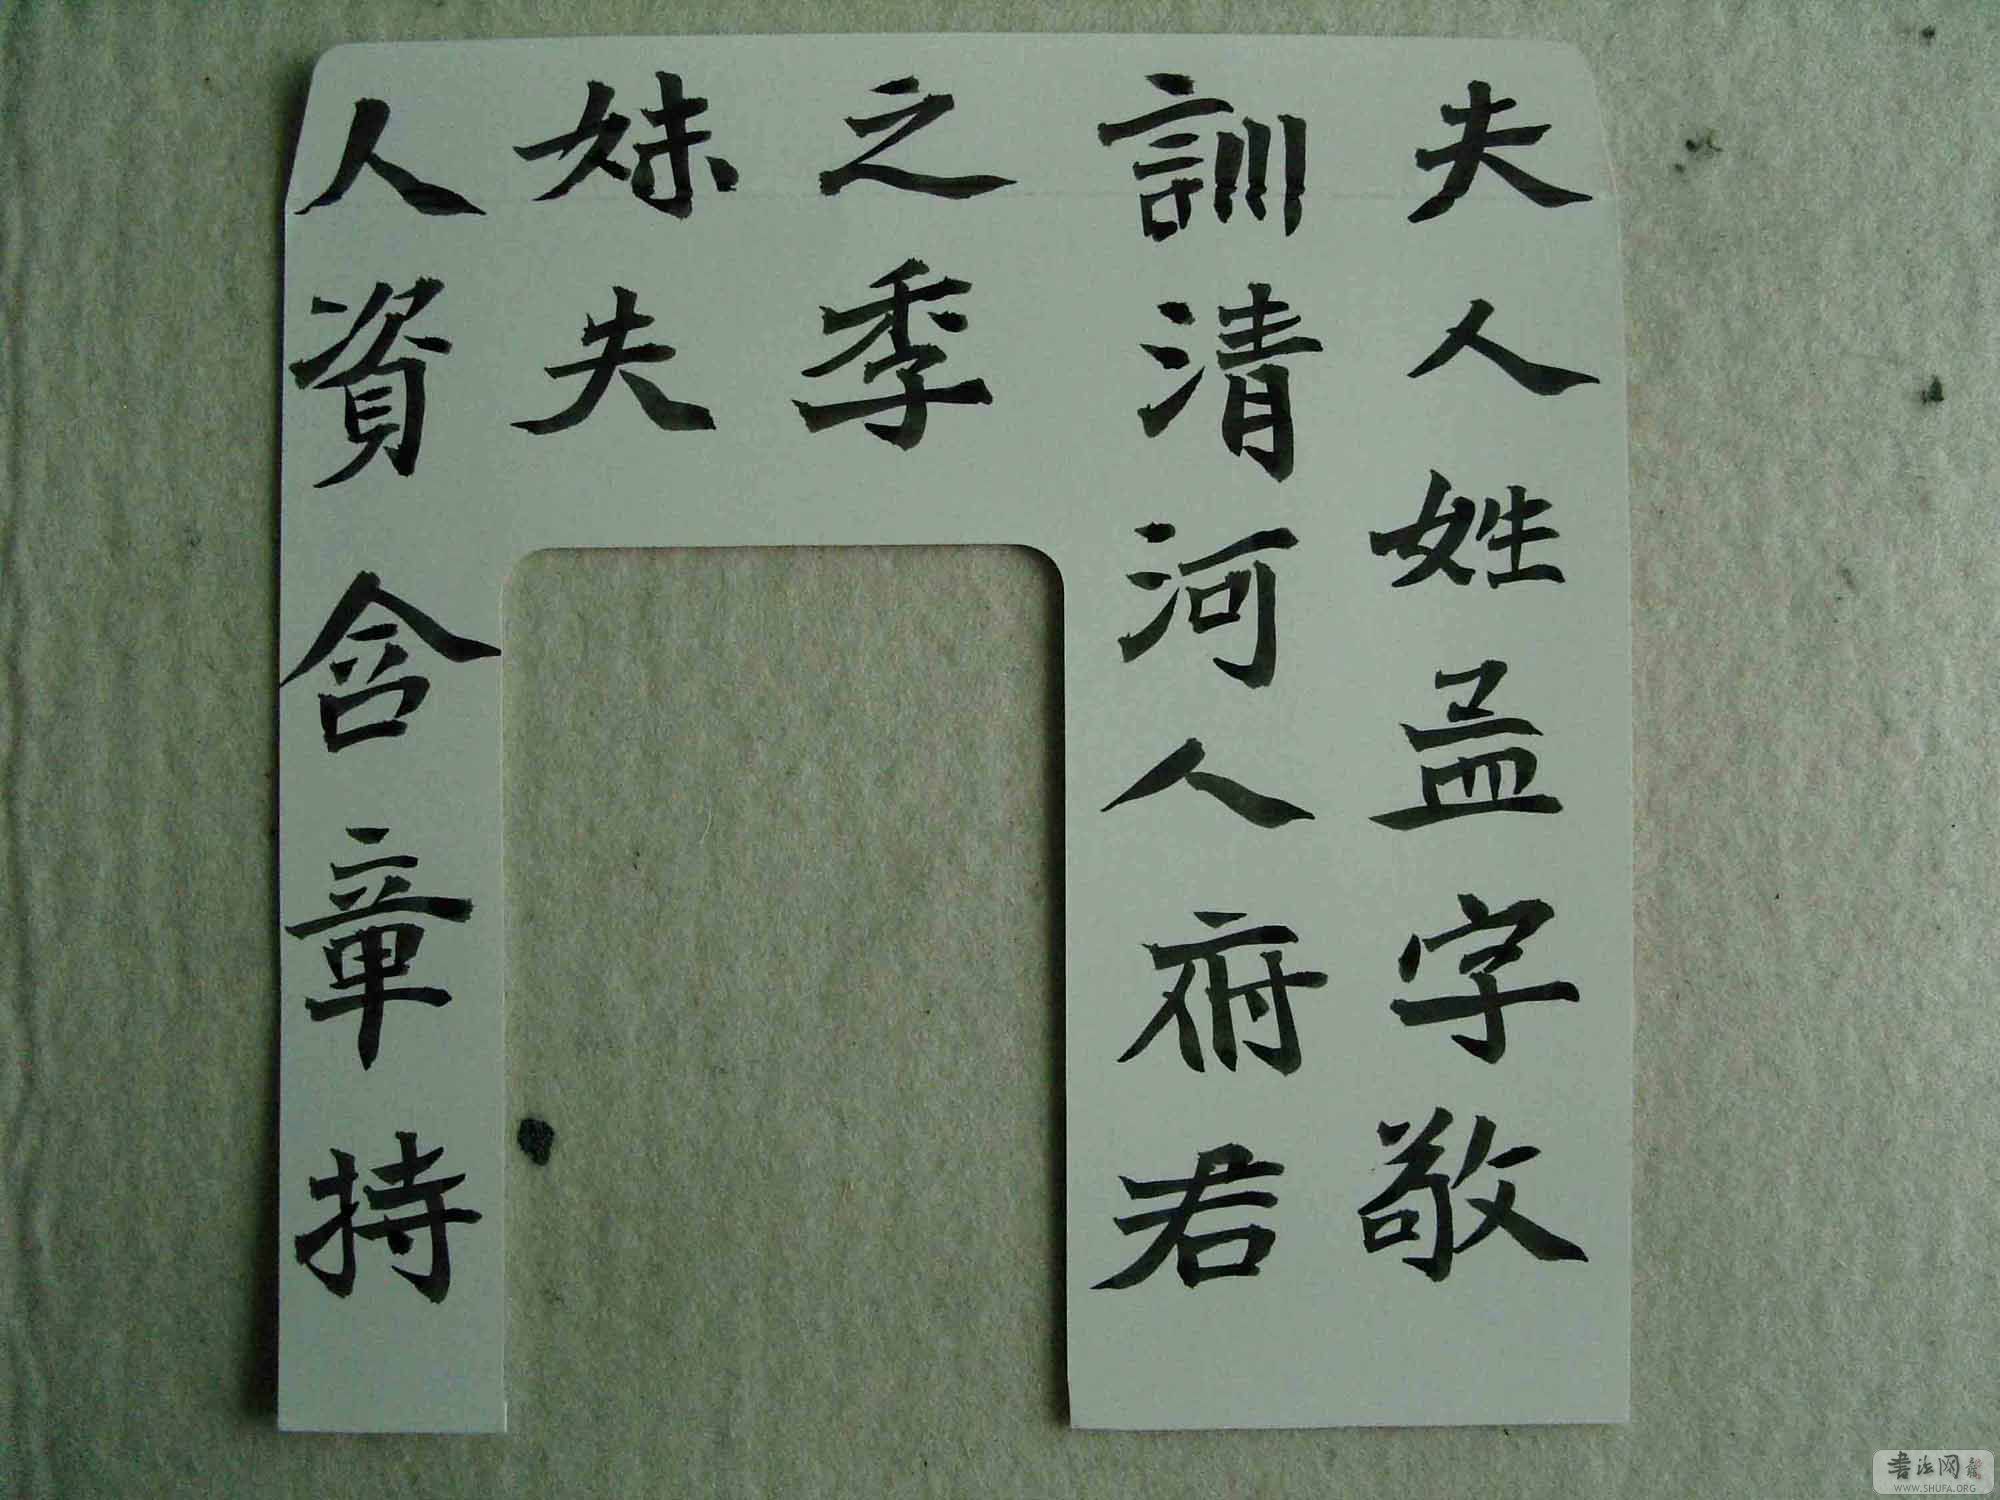 夫人姓孟字敬
訓清河人府君
之季
妹夫
人資含章持
書法网
WWW.SHUFA.ORG